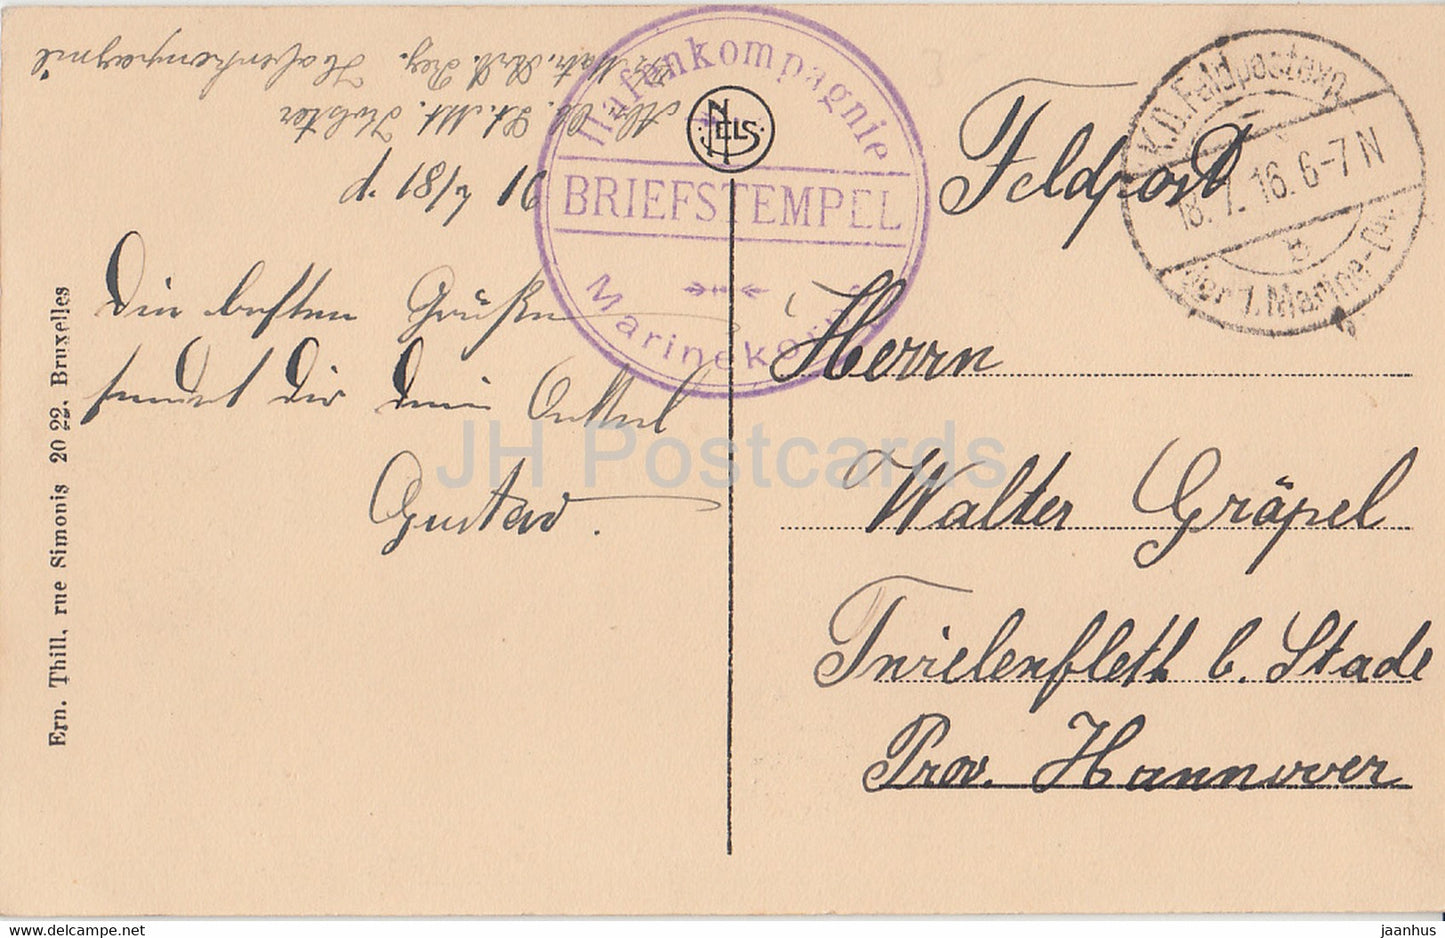 Hafenkompagnie
BRIEFSTEMPEL
Marinekorps
NELS
K.D. Feldpostexp.
18.7.16. 6-7 N
b
der 1. Marine-Div.
Feldpost
Herrn
Walter Gräpel
Twielenfleth b. Stade
Prov. Hannover
Hafenkompagnie
Matr. Art. Reg.
Holster
Die besten Grüße
sendet Dir dein Onkel
Gustav.
Ern. Thill, rue Simonis 20 22. Bruxelles
JH Postcards
jaanhus